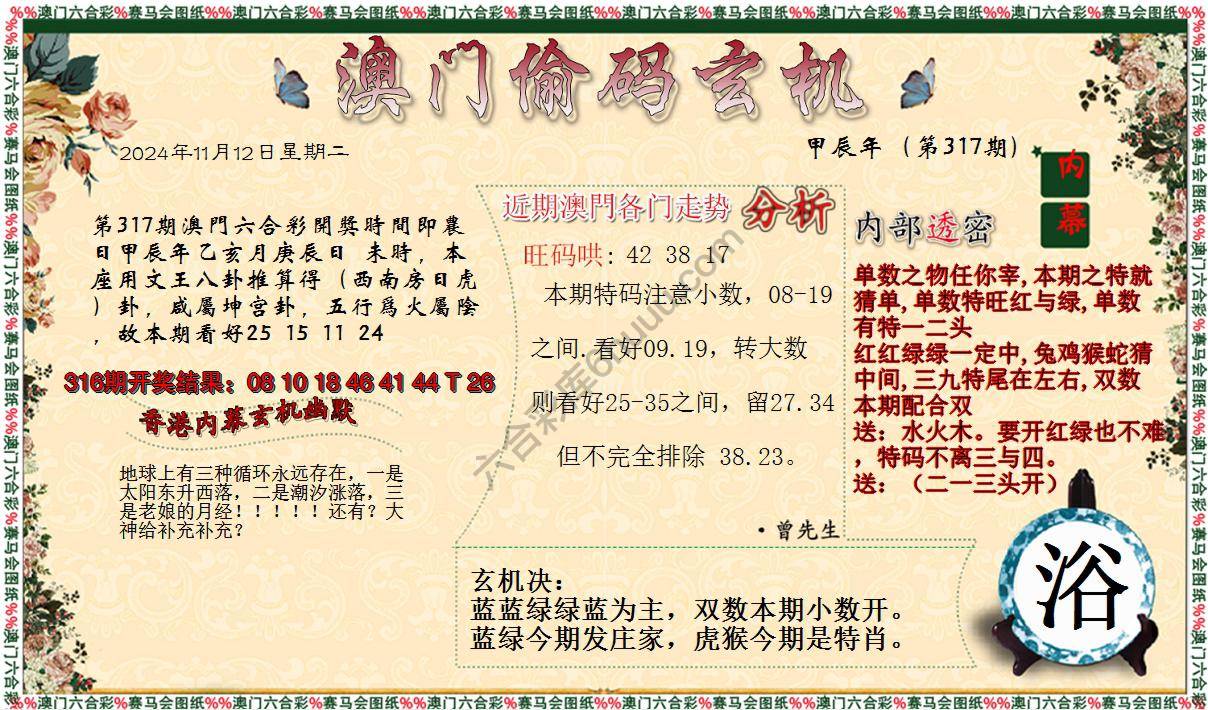 %%澳门六合彩%赛马会图纸%%澳门六合彩%赛马会图纸%%澳门六合彩%赛马会图纸%%澳门六合彩%赛马会图纸%%澳门六合彩%赛马会图纸%%澳门六合彩%赛马会图纸%%
澳门偷码玄机
2024年11月12日星期二
甲辰年（第317期）
内幕
第317期澳門六合彩開獎時間即農
日甲辰年乙亥月庚辰日 未時，本
座用文王八卦推算得（西南房日虎
）卦，咸屬坤宫卦，五行爲火屬陰
，故本期看好25 15 11 24
316期开奖结果：08 10 18 46 41 44 T 26
香港内幕玄机幽默
地球上有三种循环永远存在，一是
太阳东升西落，二是潮汐涨落，三
是老娘的月经！！！！！还有？大
神给补充补充？
近期澳門各门走势 分析
旺码哄: 42 38 17
本期特码注意小数，08-19
之间.看好09.19，转大数
则看好25-35之间，留27.34
但不完全排除 38.23。
·曾先生
内部透密
单数之物任你宰,本期之特就
猜单,单数特旺红与绿,单数
有特一二头
红红绿绿一定中,兔鸡猴蛇猜
中间,三九特尾在左右,双数
本期配合双
送：水火木。要开红绿也不难
，特码不离三与四。
送：（二一三头开）
玄机决：
蓝蓝绿绿蓝为主，双数本期小数开。
蓝绿今期发庄家，虎猴今期是特肖。
浴
%%澳门六合彩%赛马会图纸%%澳门六合彩%赛马会图纸%%澳门六合彩%赛马会图纸%%澳门六合彩%赛马会图纸%%澳门六合彩%赛马会图纸%%澳门六合彩%赛马会图纸%%